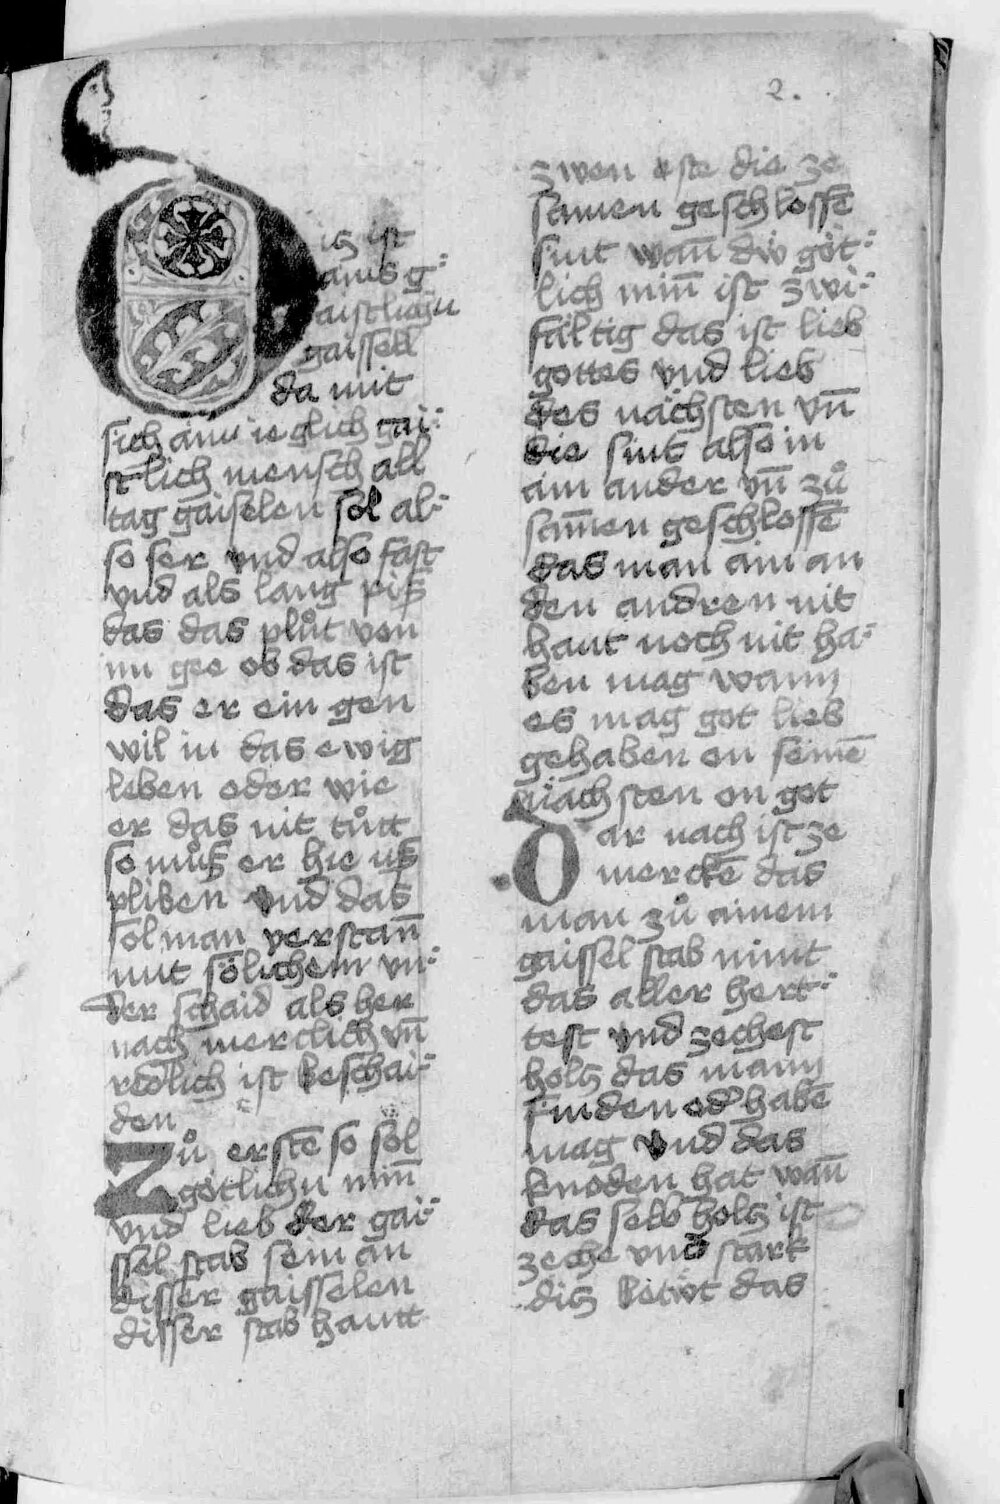 2.
Dis ist
ains g⸗
aistlichu
gaissell
da mit
sich ainu ieglich gai⸗
stlich mensch all
tag gaiselen sol al⸗
so ser vnd also fast
vnd als lang pis
das das plůt von
im gee ob das ist
das er ein gen
wil in das ewig
leben oder wie
er das nit tůtt
so můs er hie us
pliben vnd das
sol man verstan̄
mit sölichem vn⸗
der schaid als her
nach merclich vn̄
redlich ist beschai⸗
den
Zů erstē so sol
götlichu min̄
vnd lieb der gai⸗
ssel stab sein an
disser gaisselen
disser stab hautt
zwen este die ze
samen geschlossē
sint wan̄ diw göt⸗
lich min̄ ist zwi⸗
faltig das ist lieb
gottes vnd lieb
des nächsten vn̄
die sint also in
ain ander vn̄ zů
sam̄en geschlossē
das man ain an
den andren nit
haut noch nit ha⸗
ben mag wann
es mag got lieb
gehaben on seinē
nächsten on got
Dar nach ist ze
merckē das
man zů ainem
gaissel stab nimt
das aller hert⸗
test vnd zechest
holcz das mann
finden od' habē
mag vnd das
knoden hat wan̄
das selb holcz ist
zeche vnd stark
dis betẘt das